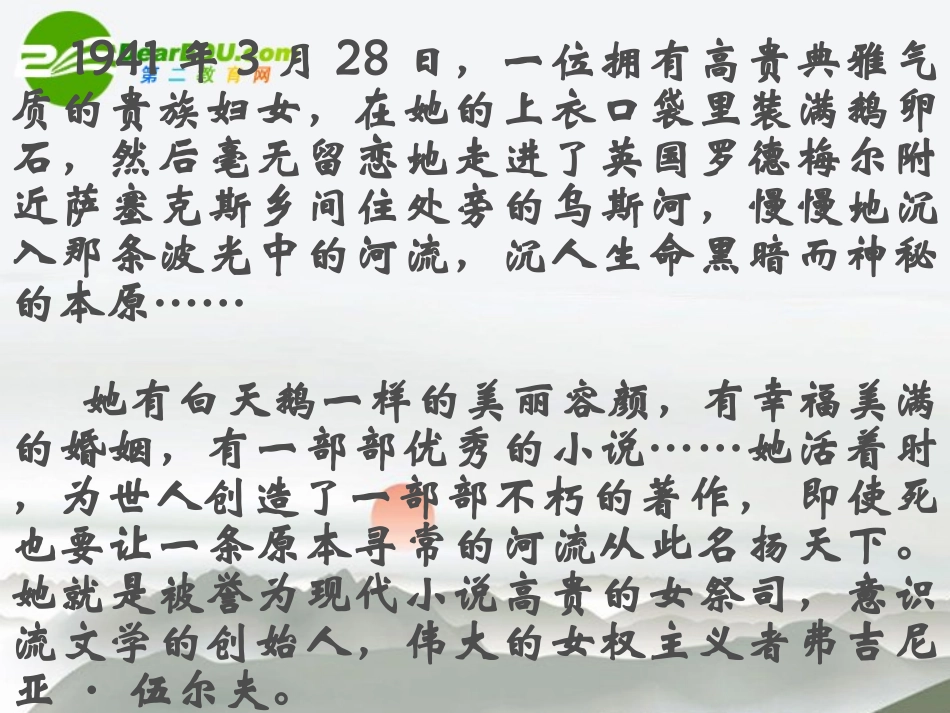 DearEDU.com
第二教育网
1941 年 3 月 28 日，一位拥有高贵典雅气
质的贵族妇女，在她的上衣口袋里装满鹅卵
石，然后毫无留恋地走进了英国罗德梅尔附
近萨塞克斯乡间住处旁的乌斯河，慢慢地沉
入那条波光中的河流，沉人生命黑暗而神秘
的本原……
她有白天鹅一样的美丽容颜，有幸福美满
的婚姻，有一部部优秀的小说……她活着时
，为世人创造了一部部不朽的著作， 即使死
也要让一条原本寻常的河流从此名扬天下。
她就是被誉为现代小说高贵的女祭司，意识
流文学的创始人，伟大的女权主义者弗吉尼
亚 · 伍尔夫。